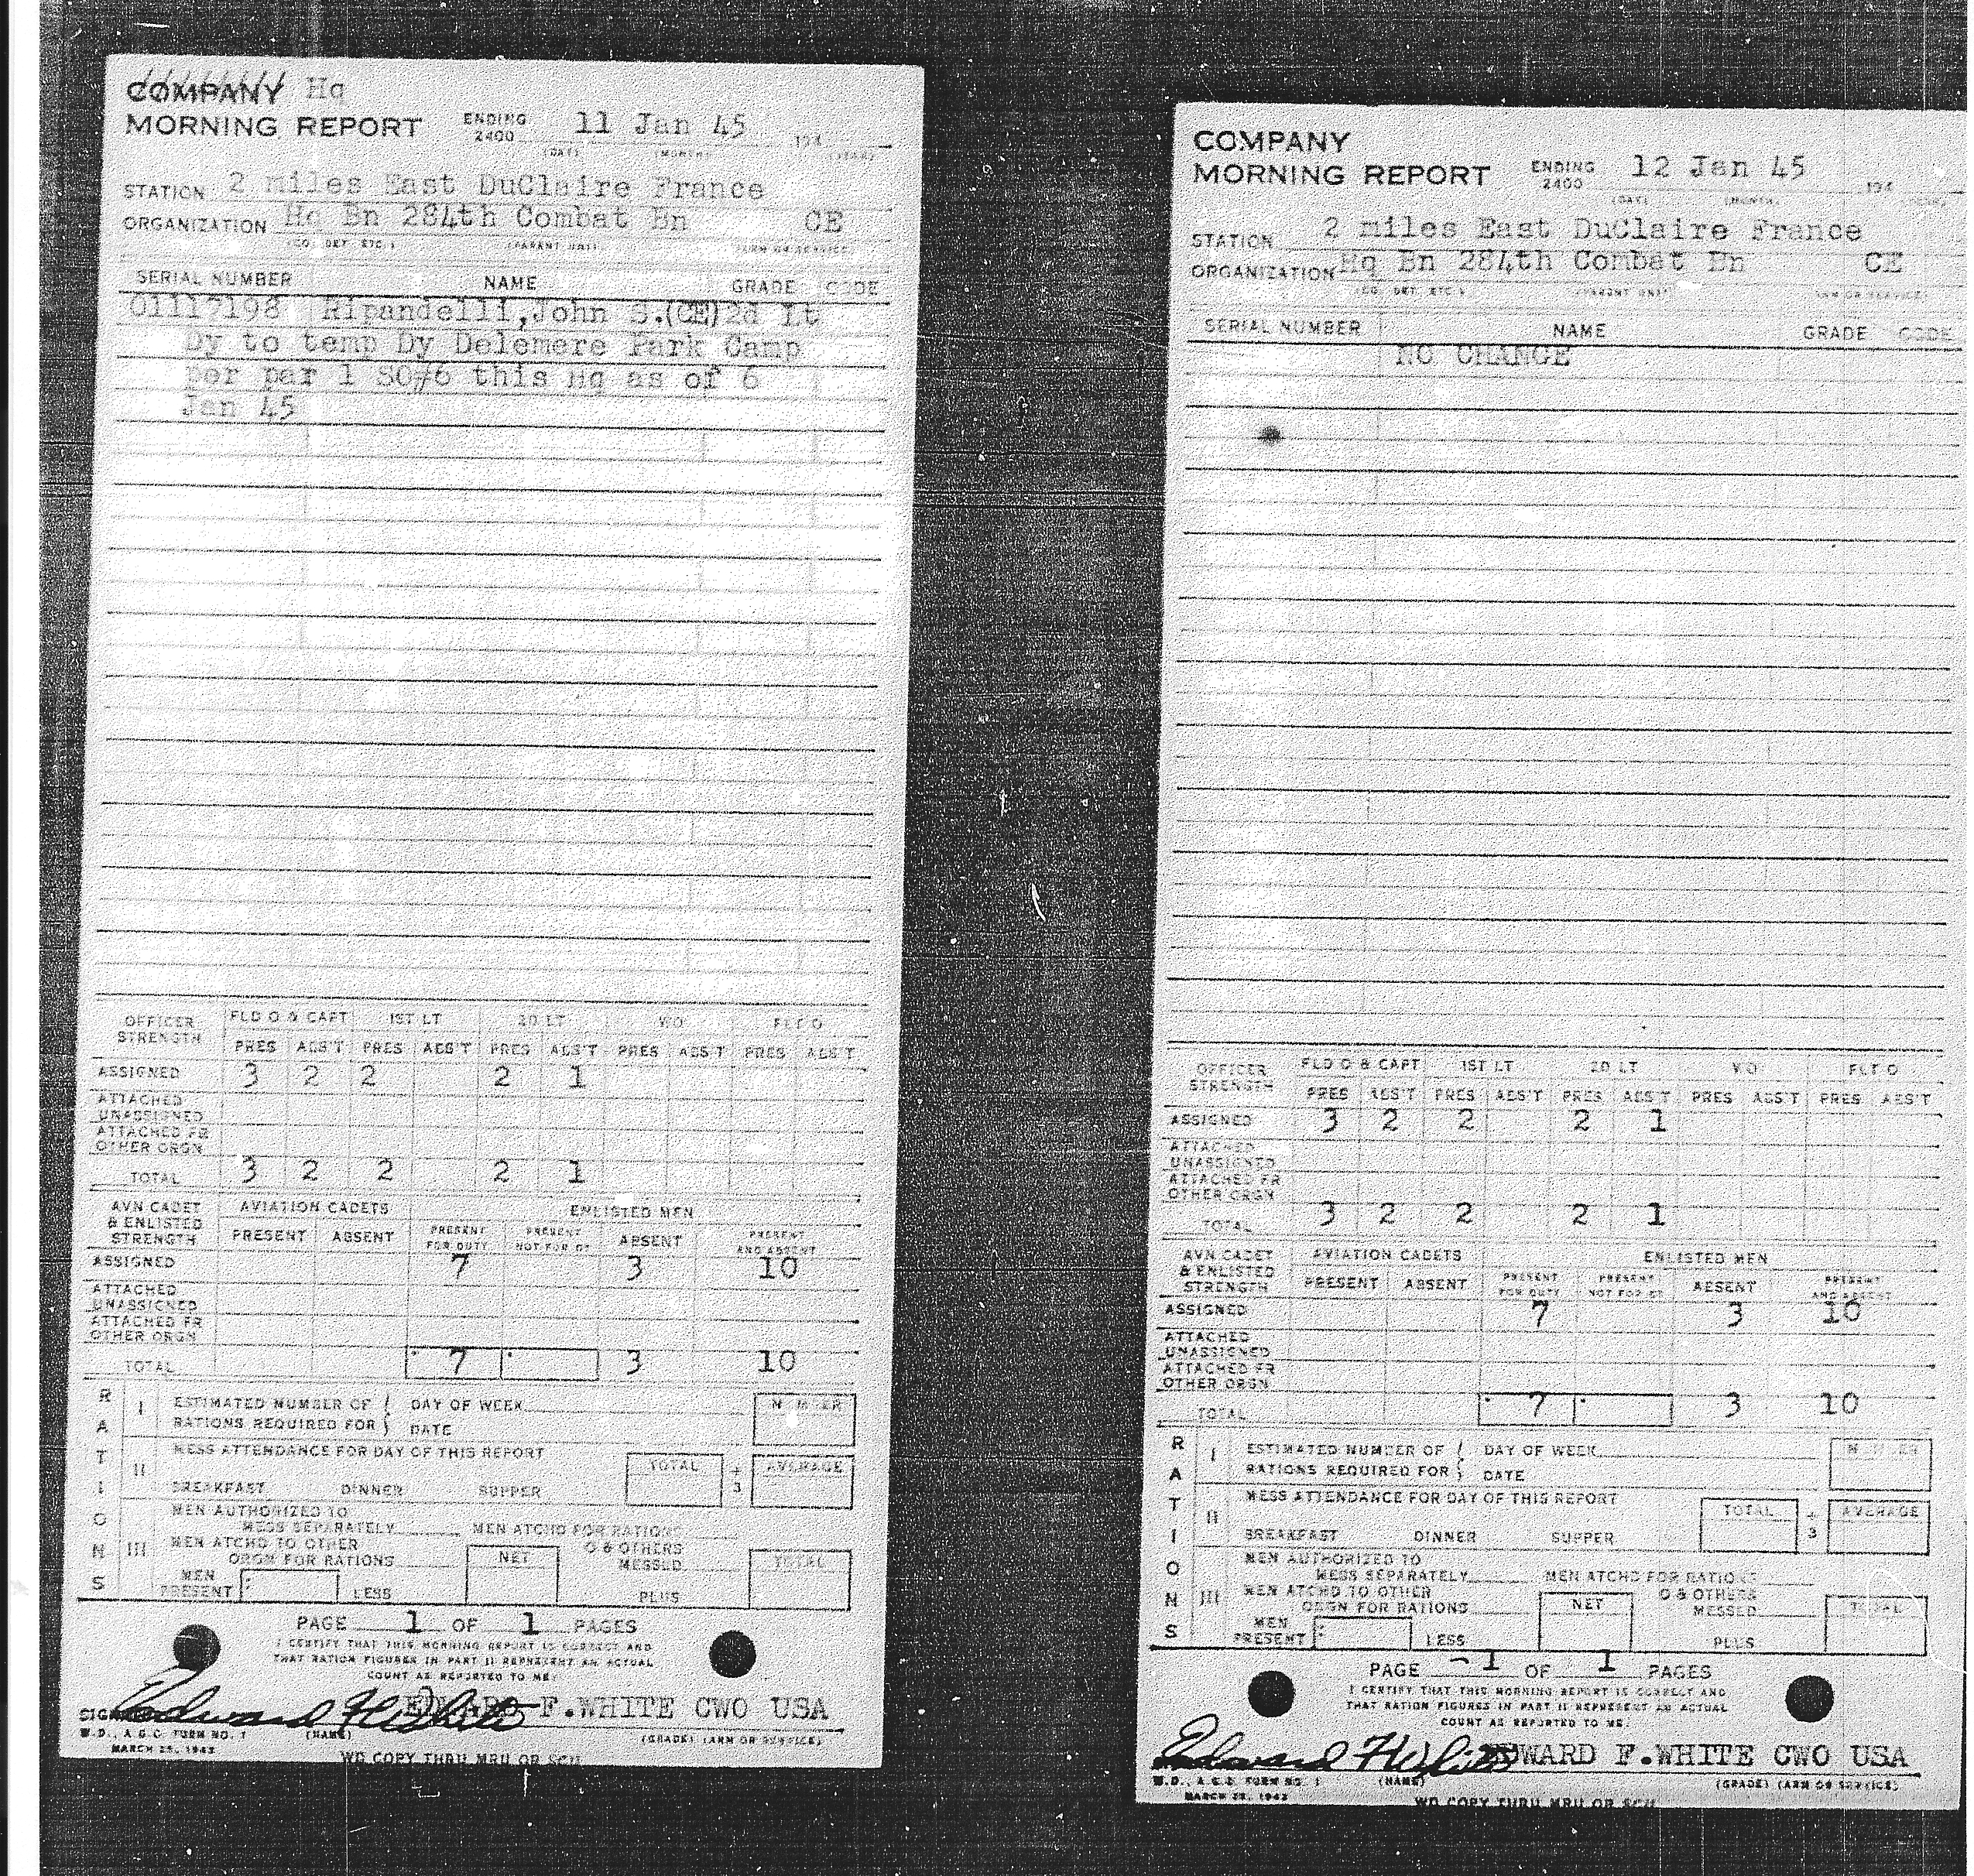 COMPANY Hq
MORNING REPORT ENDING 2400 11 Jan 45 194
(DAY) (MONTH) (YEAR)
STATION 2 miles East DuClaire France
ORGANIZATION Hq Bn 284th Combat Bn CE
(CO. DET. ETC.) (PARENT UNIT) (ARM OR SERVICE)
SERIAL NUMBER NAME GRADE CODE
01117198 Ripandelli,John S.(CE)2d Lt
Dy to temp Dy Delemere Park Camp
per par 1 SO#6 this Hq as of 6
Jan 45
OFFICER STRENGTH FLD O & CAPT 1ST LT 2D LT WO FLT O
PRES ABS'T PRES ABS'T PRES ABS'T PRES ABS'T PRES ABS'T
ASSIGNED 3 2 2 2 1
ATTACHED UNASSIGNED
ATTACHED FR OTHER ORGN
TOTAL 3 2 2 2 1
AVN CADET & ENLISTED STRENGTH AVIATION CADETS ENLISTED MEN
PRESENT ABSENT PRESENT FOR DUTY PRESENT NOT FOR DY ABSENT PRESENT AND ABSENT
ASSIGNED 7 3 10
ATTACHED UNASSIGNED
ATTACHED FR OTHER ORGN
TOTAL 7 3 10
RATIONS
I ESTIMATED NUMBER OF RATIONS REQUIRED FOR DAY OF WEEK DATE NUMBER
II MESS ATTENDANCE FOR DAY OF THIS REPORT TOTAL ÷ 3 AVERAGE
BREAKFAST DINNER SUPPER
III MEN AUTHORIZED TO MESS SEPARATELY MEN ATCHD FOR RATIONS
MEN ATCHD TO OTHER ORGN FOR RATIONS NET O & OTHERS MESSED TOTAL
MEN PRESENT LESS PLUS
PAGE 1 OF 1 PAGES
I CERTIFY THAT THIS MORNING REPORT IS CORRECT AND
THAT RATION FIGURES IN PART II REPRESENT AN ACTUAL
COUNT AS REPORTED TO ME.
Edward F White EDWARD F.WHITE CWO USA
W.D., A.G.O. FORM NO. 1 (NAME) (GRADE) (ARM OR SERVICE)
MARCH 25, 1943
WD COPY THRU MRU OR SCU
COMPANY
MORNING REPORT ENDING 2400 12 Jan 45 194
(DAY) (MONTH) (YEAR)
STATION 2 miles East DuClaire France
ORGANIZATION Hq Bn 284th Combat Bn CE
(CO. DET. ETC.) (PARENT UNIT) (ARM OR SERVICE)
SERIAL NUMBER NAME GRADE CODE
NO CHANGE
OFFICER STRENGTH FLD O & CAPT 1ST LT 2D LT WO FLT O
PRES ABS'T PRES ABS'T PRES ABS'T PRES ABS'T PRES ABS'T
ASSIGNED 3 2 2 2 1
ATTACHED UNASSIGNED
ATTACHED FR OTHER ORGN
TOTAL 3 2 2 2 1
AVN CADET & ENLISTED STRENGTH AVIATION CADETS ENLISTED MEN
PRESENT ABSENT PRESENT FOR DUTY PRESENT NOT FOR DY ABSENT PRESENT AND ABSENT
ASSIGNED 7 3 10
ATTACHED UNASSIGNED
ATTACHED FR OTHER ORGN
TOTAL 7 3 10
RATIONS
I ESTIMATED NUMBER OF RATIONS REQUIRED FOR DAY OF WEEK DATE NUMBER
II MESS ATTENDANCE FOR DAY OF THIS REPORT TOTAL ÷ 3 AVERAGE
BREAKFAST DINNER SUPPER
III MEN AUTHORIZED TO MESS SEPARATELY MEN ATCHD FOR RATIONS
MEN ATCHD TO OTHER ORGN FOR RATIONS NET O & OTHERS MESSED TOTAL
MEN PRESENT LESS PLUS
PAGE 1 OF 1 PAGES
I CERTIFY THAT THIS MORNING REPORT IS CORRECT AND
THAT RATION FIGURES IN PART II REPRESENT AN ACTUAL
COUNT AS REPORTED TO ME.
Edward F White EDWARD F.WHITE CWO USA
W.D., A.G.O. FORM NO. 1 (NAME) (GRADE) (ARM OR SERVICE)
MARCH 25, 1943
WD COPY THRU MRU OR SCU